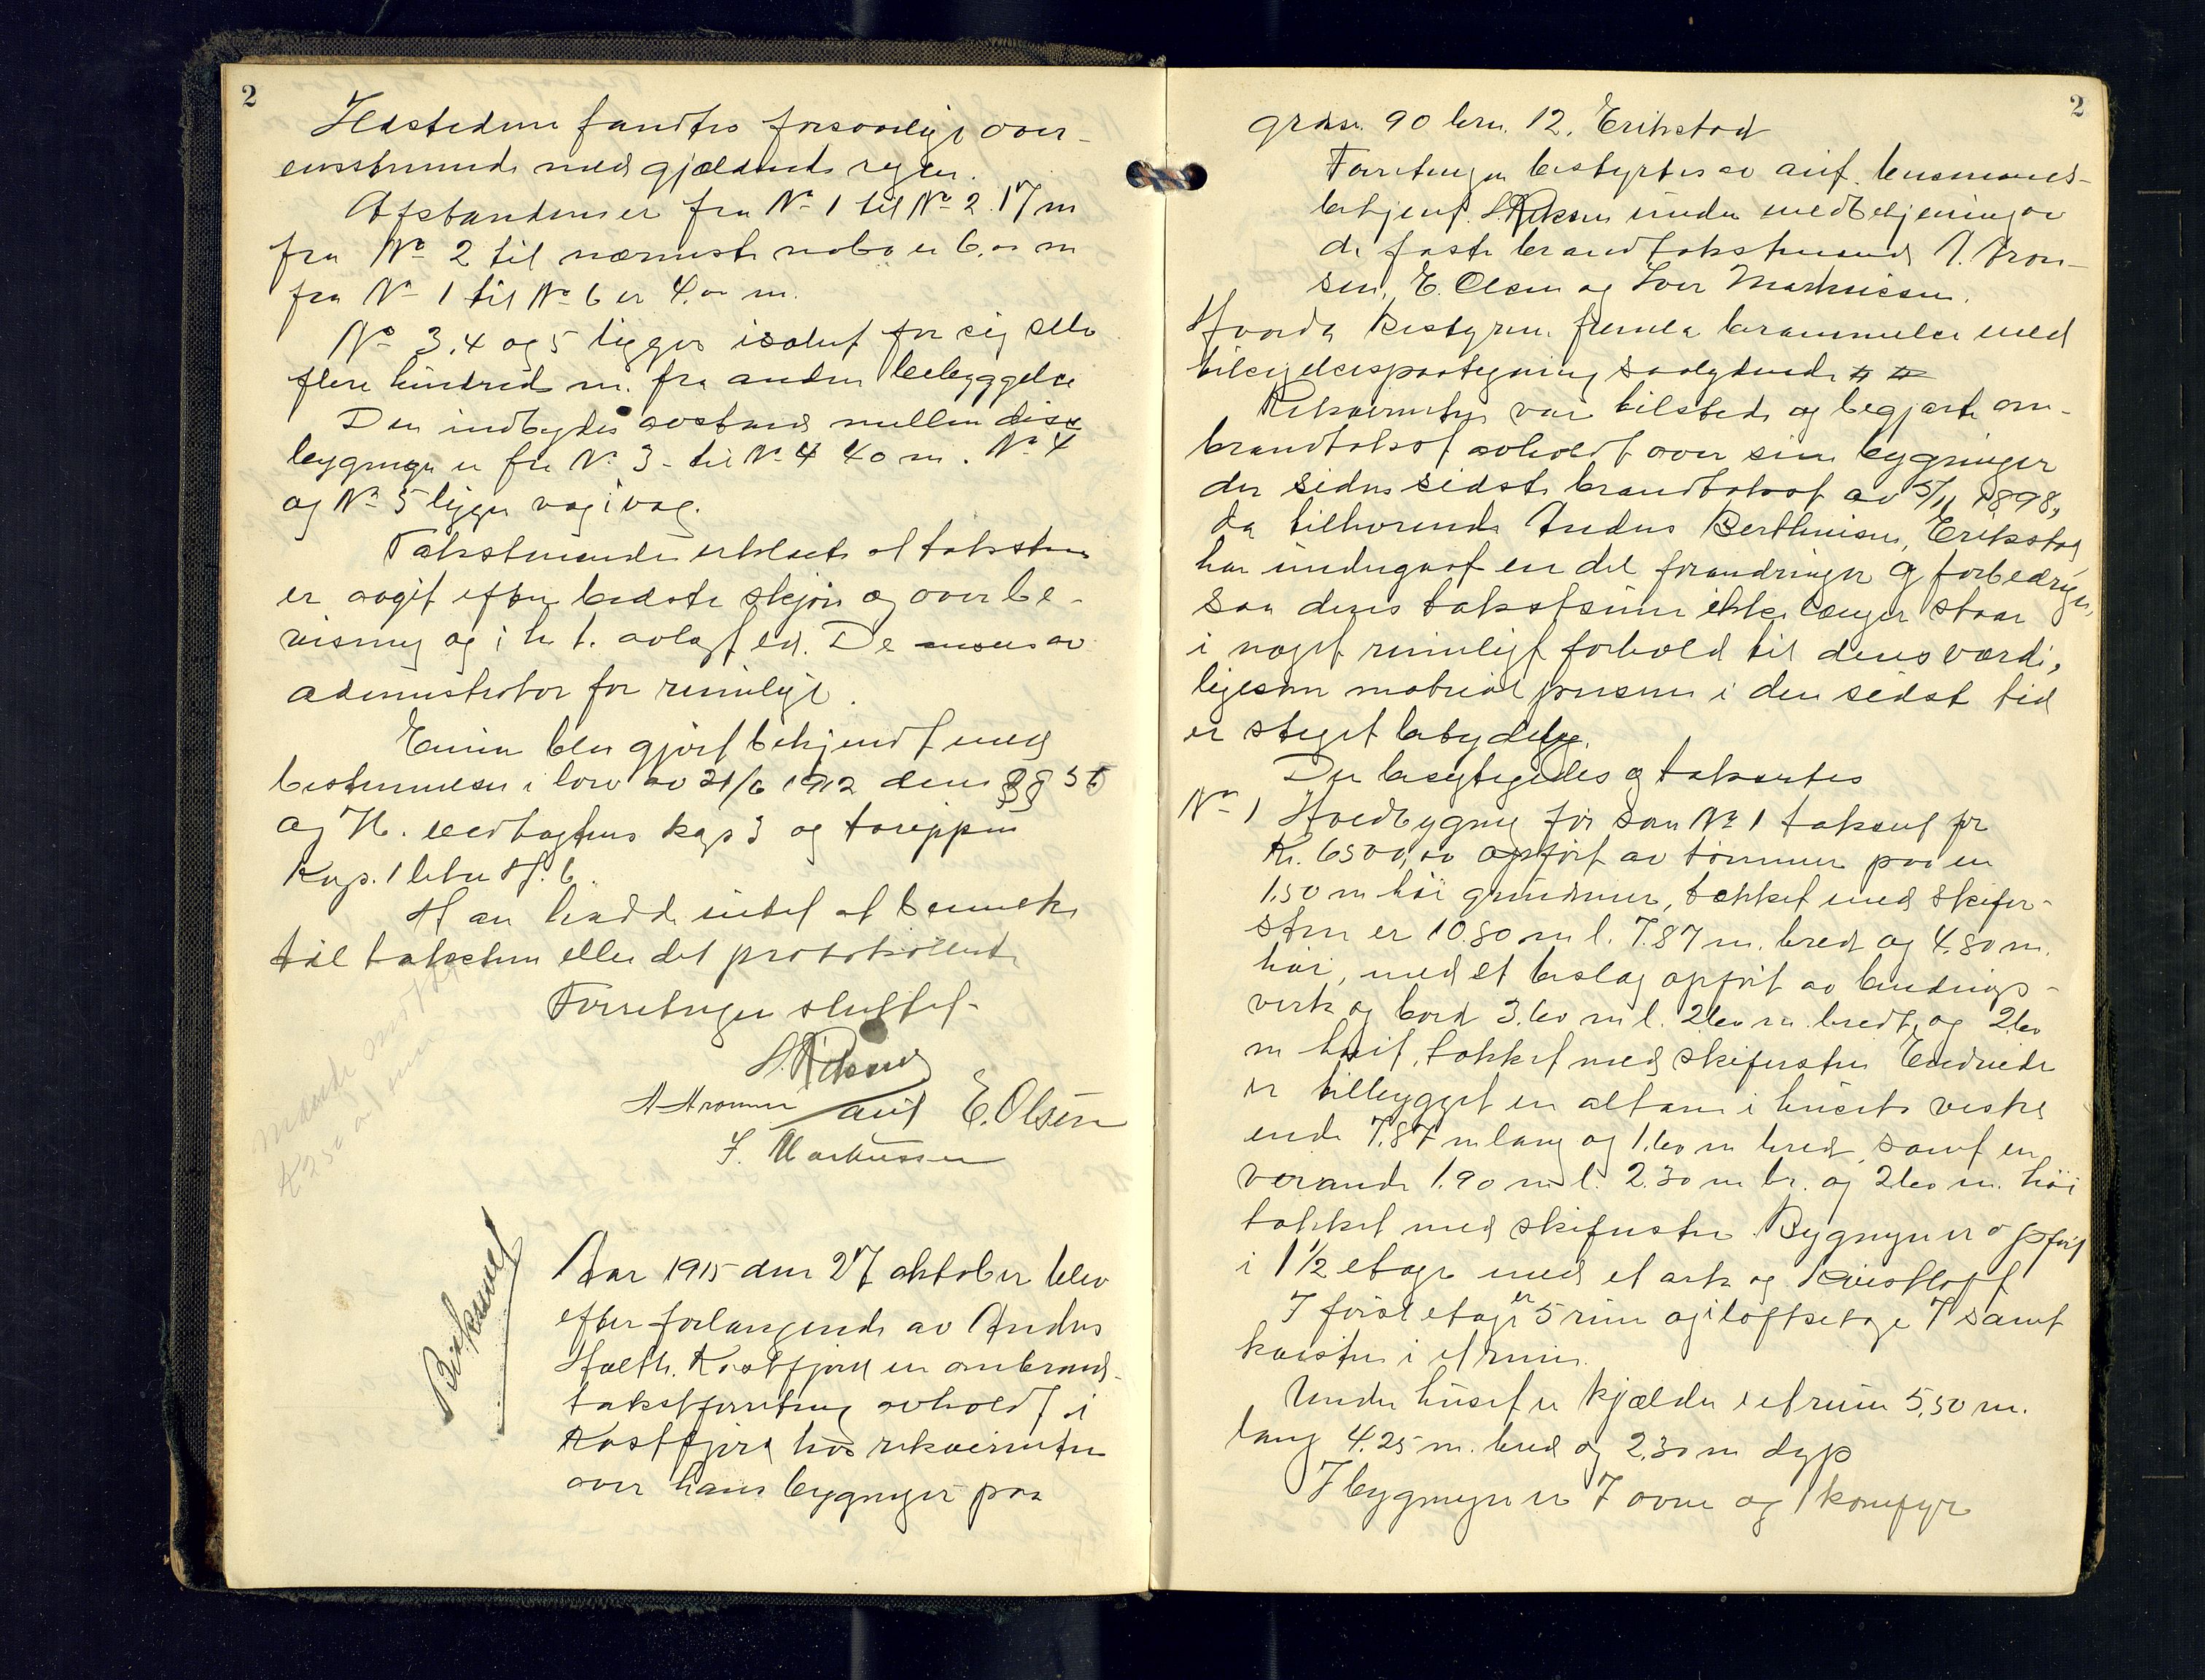 2
Ildstedene fandtes forsvarlige over-
ensstemmende med gjældende regler.
Afstanden er fra No 1 til No 2 17 m
fra No 2 til nærmeste nabo er 6,00 m
fra No 1 til No 6 er 4,00 m.
No 3, 4 og 5 ligger isolert for sig selv
flere hundred m. fra anden bebyggelse
Den indbyrdes avstand mellem disse
bygninger er fra No 3 - til No 4 40 m. No 4
og No 5 ligger væg i væg.
Takstmændene erklærte at taksten
er avgit efter bedste skjøn og overbe-
visning og i h. t. avlagt ed. De ansees av
administrator for rimelige.
Eieren blev gjort bekjendt med
bestemmelsen i lov av 21/6 1912 dens §§ 36
og 76. vedtægtens kap 3 og tariffen
Kap. 1 litr H. 6.
Han hadde intet at bemerke
til taksten eller det protokollerte
Forretningen sluttet.
A Aronsen auf E. Olsen
I. Markussen
Aar 1915 den 27 oktober blev
efter forlangende av Anders
Hælth. Kostfjord en ombrand-
takstforretning avholdt i
Kostfjord hos rekvirenten
over hans bygninger paa
2
grdsn. 90 brn. 12. Erikstad
Forretningen bestyrtes av auf. lensmands-
betjent under medbetjening av
de faste brandtakstmænd A. Aron-
sen, E. Olsen og Iver Markussen.
Hvorda bestyreren fremla berammelse med
tilsigelsespaategning saalydende # #
Rekvirenten var tilstede og begjærte om-
brandtakst avholdt over sine bygninger
der siden sidste brandtakst av 5/11 1898,
da tilhørende Anders Berthinsen, Erikstad
har undergaat en del forandringer og forbedringer,
saa deres takstsum ikke længer staar
i noget rimeligt forhold til deres værdi,
ligesom material prisene i den sidst tid
er steget betydelig.
Der besigtigedes og taksertes
No 1 Hovedbygning før som No 1 taksert for
Kr. 6500,00 opført av tømmer paa en
1.50 m høi grundmur, tækket med skifer-
sten er 10.80 m l. 7.87 m. bred og 4.80 m.
høi, med et beslag opført av bindings-
verk og bord 3.60 m l. 2.60 m. bredt, og 2.60
m høit, tækket med skifersten Endvidere
er tilbygget en altan i husets vestre
ende 7.87 m lang og 1.60 m bred samt en
veranda 1.90 m l. 2.30 m br. og 2.60 m. høi
tækket med skifersten Bygningen er opført
i 1 1/2 etage med et ark og kvistloft
I første etage er 5 rum og i loftsetage 7 samt
kvisten i et rum.
Under huset er kjælder i et rum 5,50 m.
lang 4.25 m. bred og 2.30 m dyp
I bygningen er 7 ovne og 1 komfyr